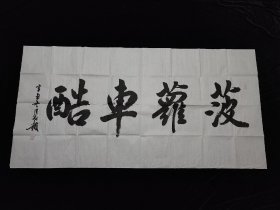 菠蘿車酷